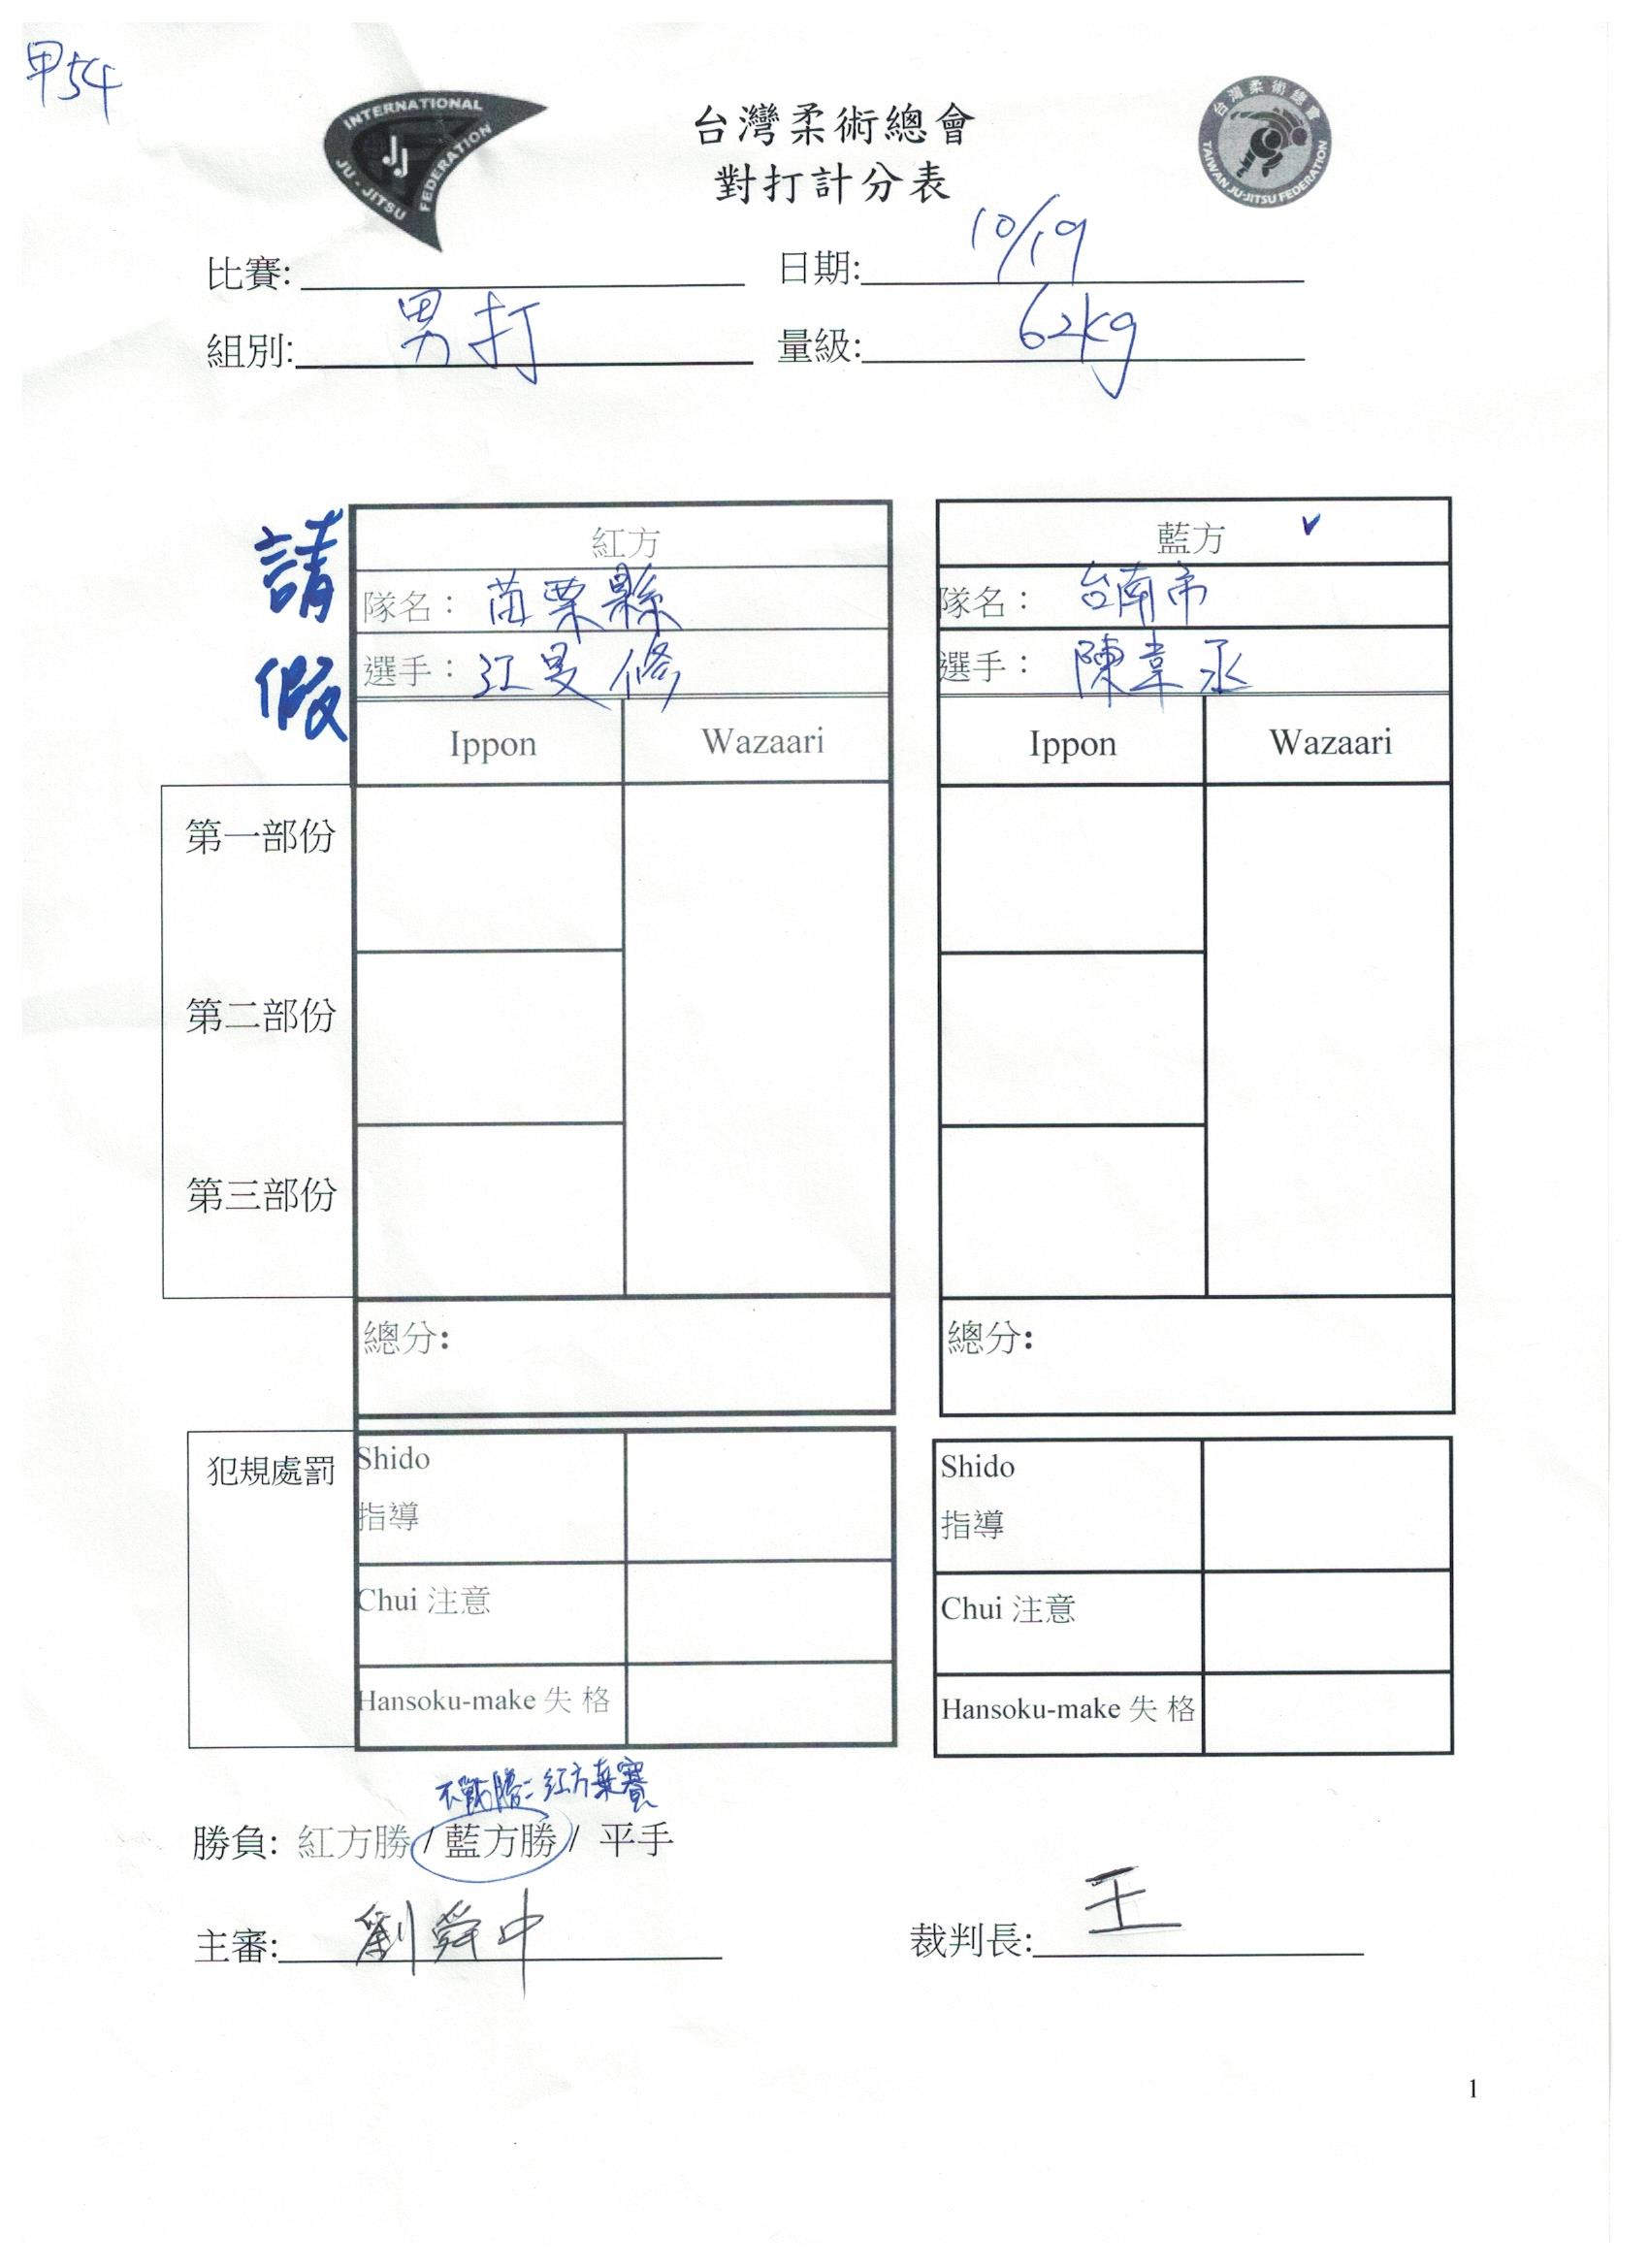 甲54
INTERNATIONAL
JJ
JU-JITSU FEDERATION
台灣柔術總會
對打計分表
台灣柔術總會
TAIWAN JU-JITSU FEDERATION
比賽: 日期: 10/19
組別: 男打 量級: 62kg
請假
紅方 藍方 ✓
隊名: 苗栗縣 隊名: 台南市
選手: 江旻修 選手: 陳韋丞
Ippon Wazaari Ippon Wazaari
第一部份
第二部份
第三部份
總分: 總分:
犯規處罰 Shido Shido
指導 指導
Chui 注意 Chui 注意
Hansoku-make 失 格 Hansoku-make 失 格
不戰勝: 紅方棄賽
勝負: 紅方勝 / 藍方勝 / 平手
主審: 劉舜中 裁判長: 王
1